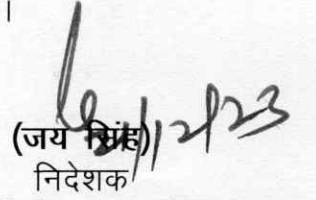 21/12/23
(जय सिंह)
निदेशक